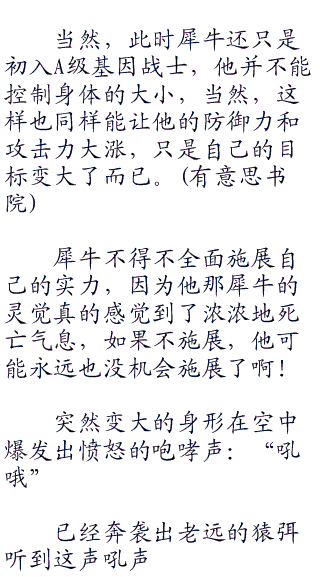 当然，此时犀牛还只是
初入A级基因战士，他并不能
控制身体的大小，当然，这
样也同样能让他的防御力和
攻击力大涨，只是自己的目
标变大了而已。（有意思书
院）
犀牛不得不全面施展自
己的实力，因为他那犀牛的
灵觉真的感觉到了浓浓地死
亡气息，如果不施展，他可
能永远也没机会施展了啊！
突然变大的身形在空中
爆发出愤怒的咆哮声：“吼
哦”
已经奔袭出老远的猿弭
听到这声吼声